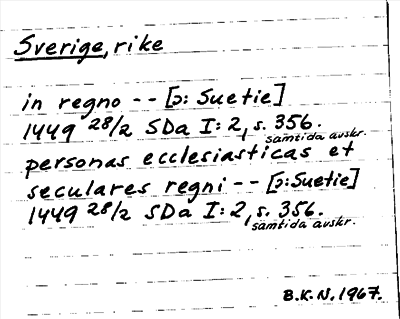 Sverige, rike
in regno -- [ɔ: Suetie]
1449 28/2 SDa I: 2, s. 356.
samtida avskr.
personas ecclesiasticas et
seculares regni -- [ɔ: Suetie]
1449 28/2 SDa I: 2, s. 356.
samtida avskr.
B.K.-N. 1967.